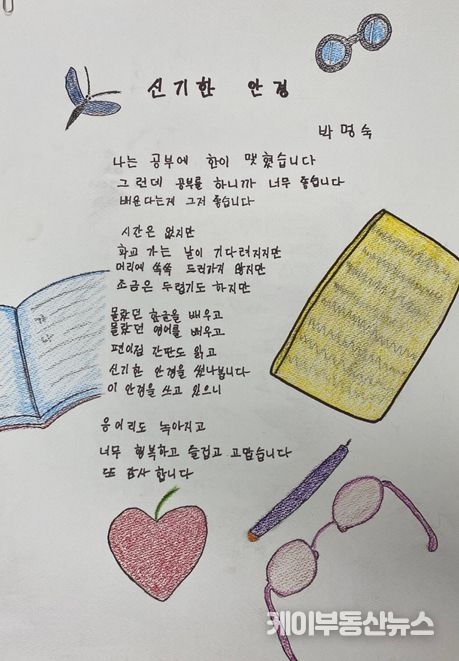 신기한 안경
박명숙
나는 공부에 한이 맺혔습니다
그런데 공부를 하니까 너무 좋습니다
배운다는게 그저 좋습니다
시간은 없지만
학교 가는 날이 기다려지지만
머리에 쏙쏙 드러가지 않지만
조금은 두렵기도 하지만
몰랐던 한글을 배우고
몰랐던 영어를 배우고
편이점 간판도 읽고
신기한 안경을 썼나봅니다
이 안경을 쓰고 있으니
응어리도 녹아지고
너무 행복하고 즐겁고 고맙습니다
또 감사 합니다
가
케이부동산뉴스